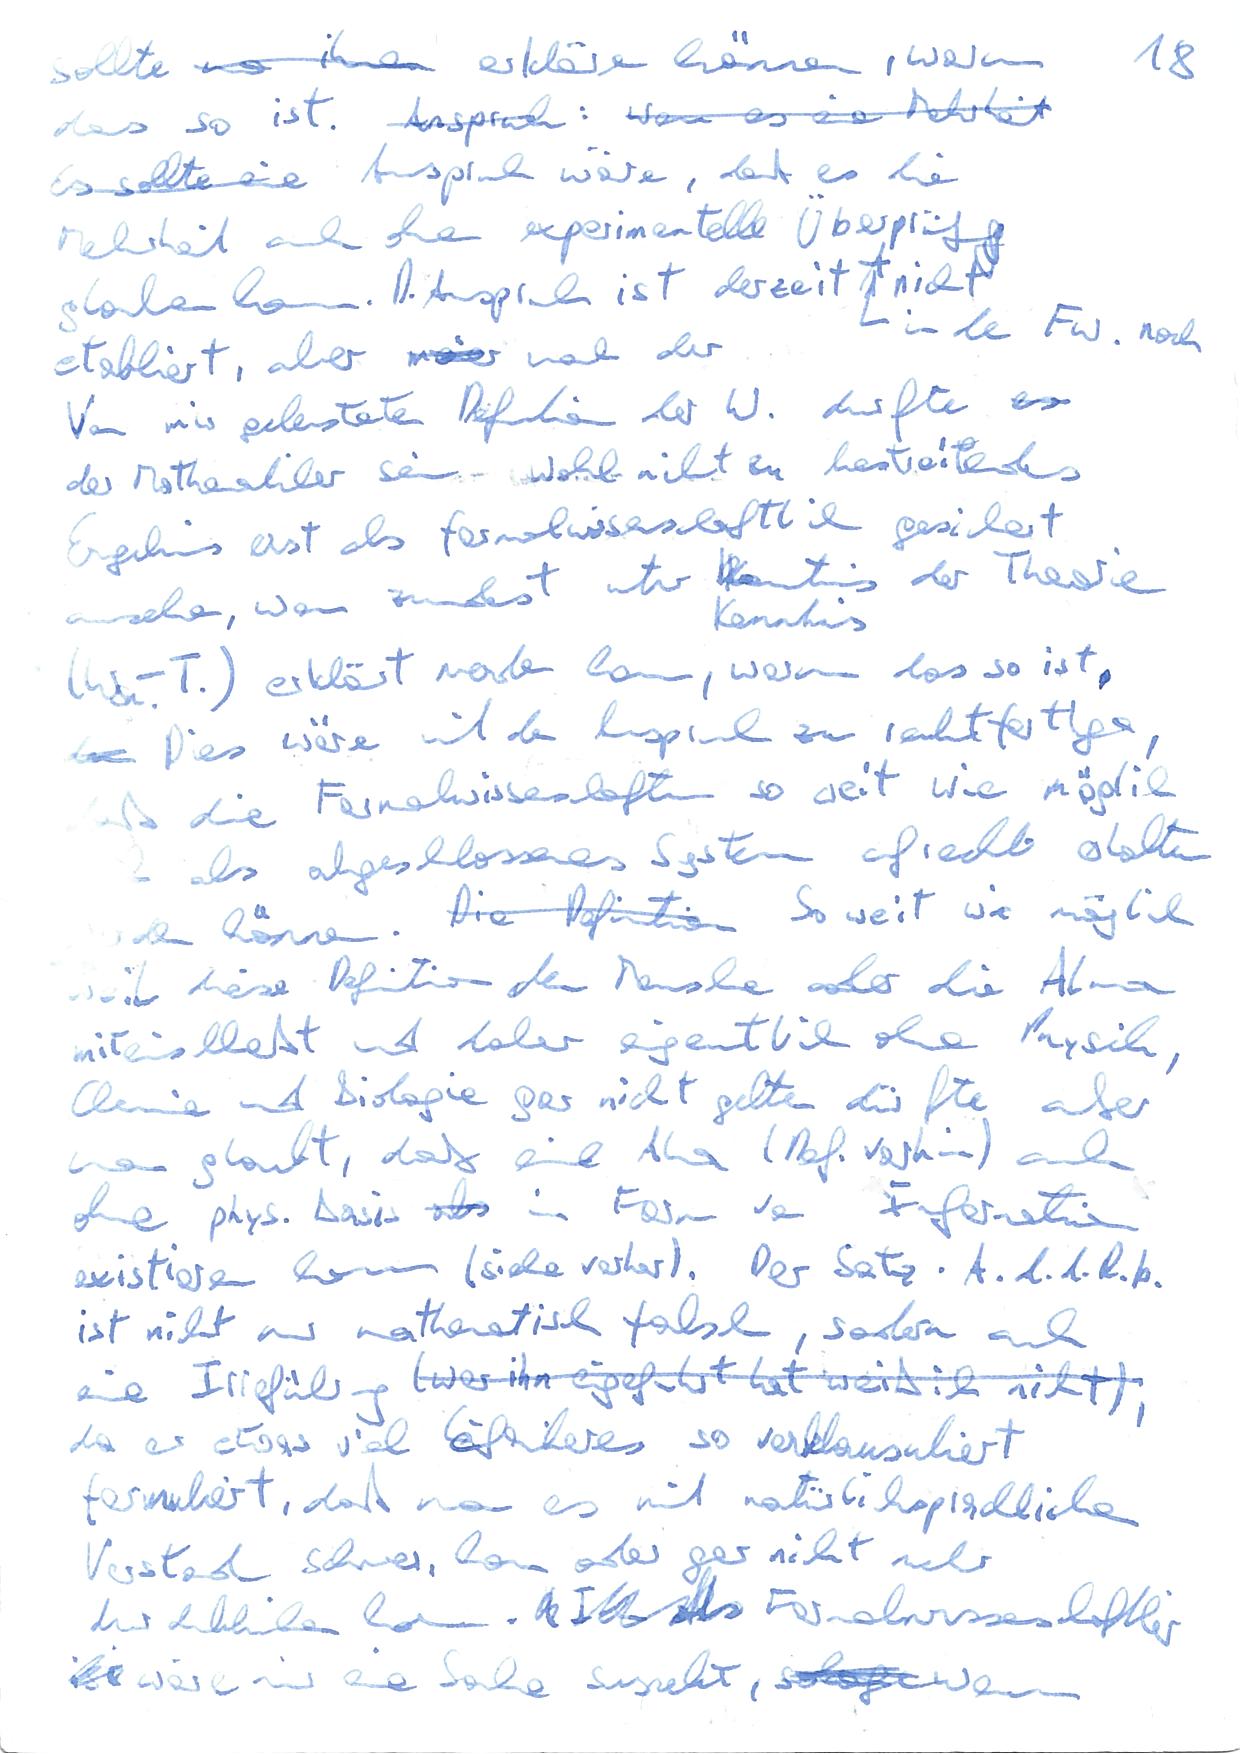 18
sollte erklären können, warum
das so ist. Anspruch: wenn es die Mehrheit
Es sollte ein Anspruch wäre, daß es die
Mehrheit auch ohne experimentelle Überprüfung
glauben kann. D. Anspruch ist derzeit nicht
in der FW. noch
etabliert, aber nach der
Von mir geleisteten Definition der W. dürfte es
der Mathematiker sein wohl nicht zu bestreitendes
Ergebnis erst als formalwissenschaftlich gesichert
ansehen, wenn zumindest unter Kenntnis der Theorie
Kenntnis
erklärt werden kann, warum das so ist,
Dies wäre mit dem Anspruch zu rechtfertigen,
daß die Formalwissenschaften so weit wie möglich
als abgeschlossenes System aufrecht erhalten
können. Die Definition So weit wie möglich
weil diese Definition den Menschen oder die Alma
miteinschließt und daher eigentlich ohne Physik,
Chemie und Biologie gar nicht gelten dürfte außer
man glaubt, daß eine Alma (Def. vorhin) auch
ohne phys. Basis als in Form von Information
existieren kann (siehe vorher). Der Satz
ist nicht nur mathematisch falsch, sondern auch
eine Irreführung (wer ihn eingeführt hat weiß ich nicht),
da er etwas viel Einfacheres so verklausuliert
formuliert, daß man es mit natürlichsprachlichen
Verstand schwer, kaum oder gar nicht mehr
durchblicken kann. Als Formalwissenschaftler
wäre mir eine Sache suspekt, wenn